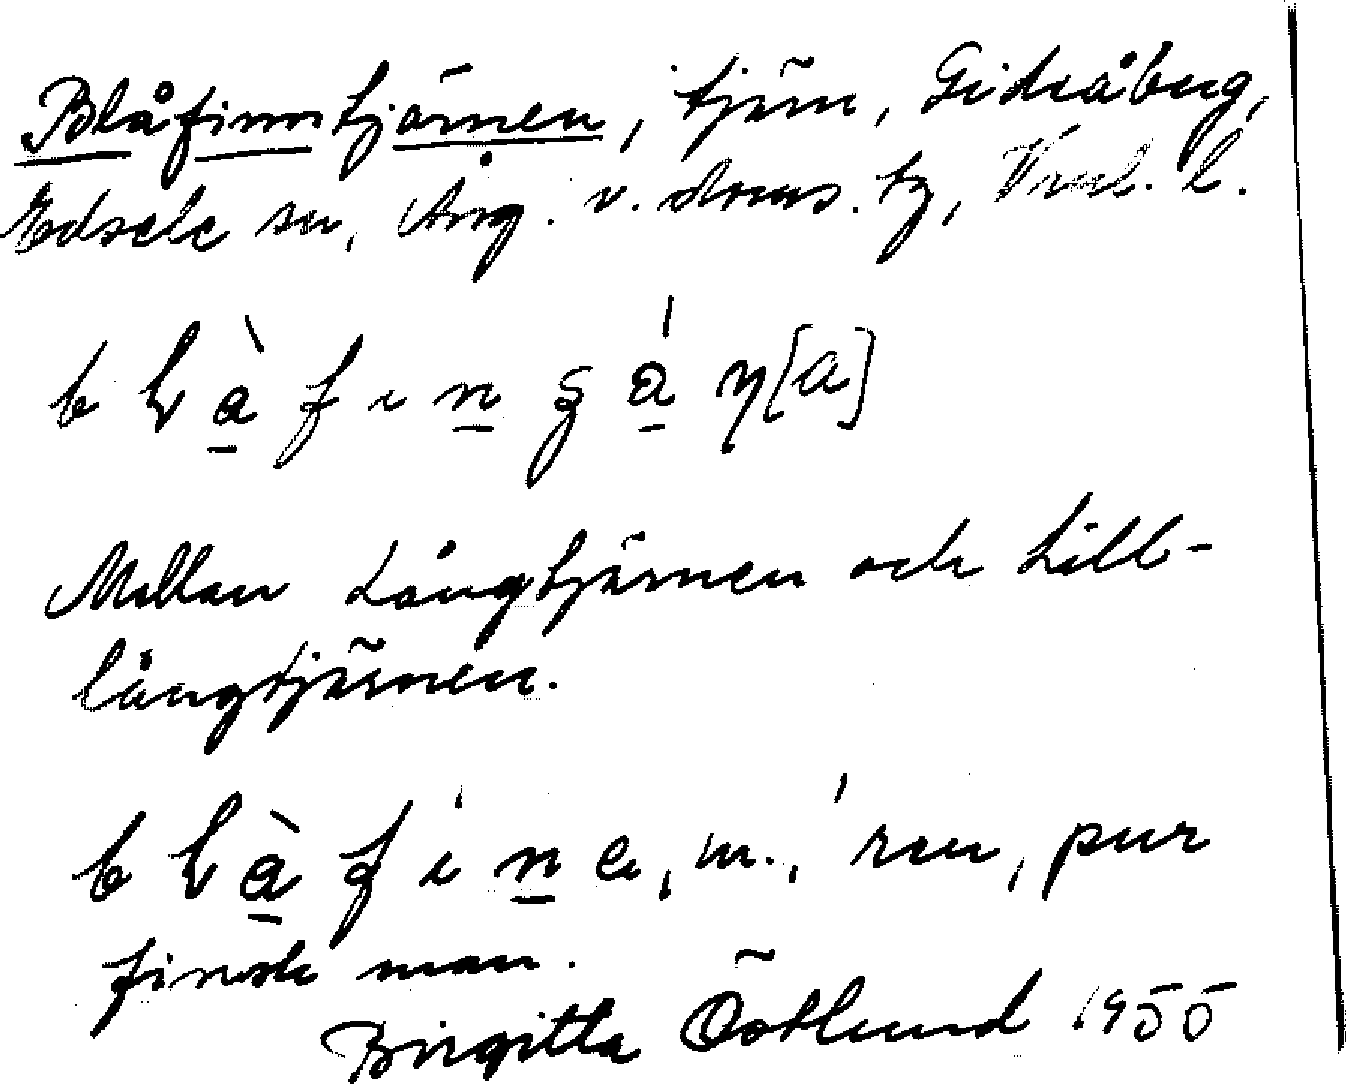 Blåfinntjärnen, tjärn, Gideåberg,
Edsele sn, Ång. v. doms. tg, Vnrl. l.
Mellan Långtjärnen och Lill-
långtjärnen.
m., ren, pur
finsk man.
Birgitta Östlund 1955